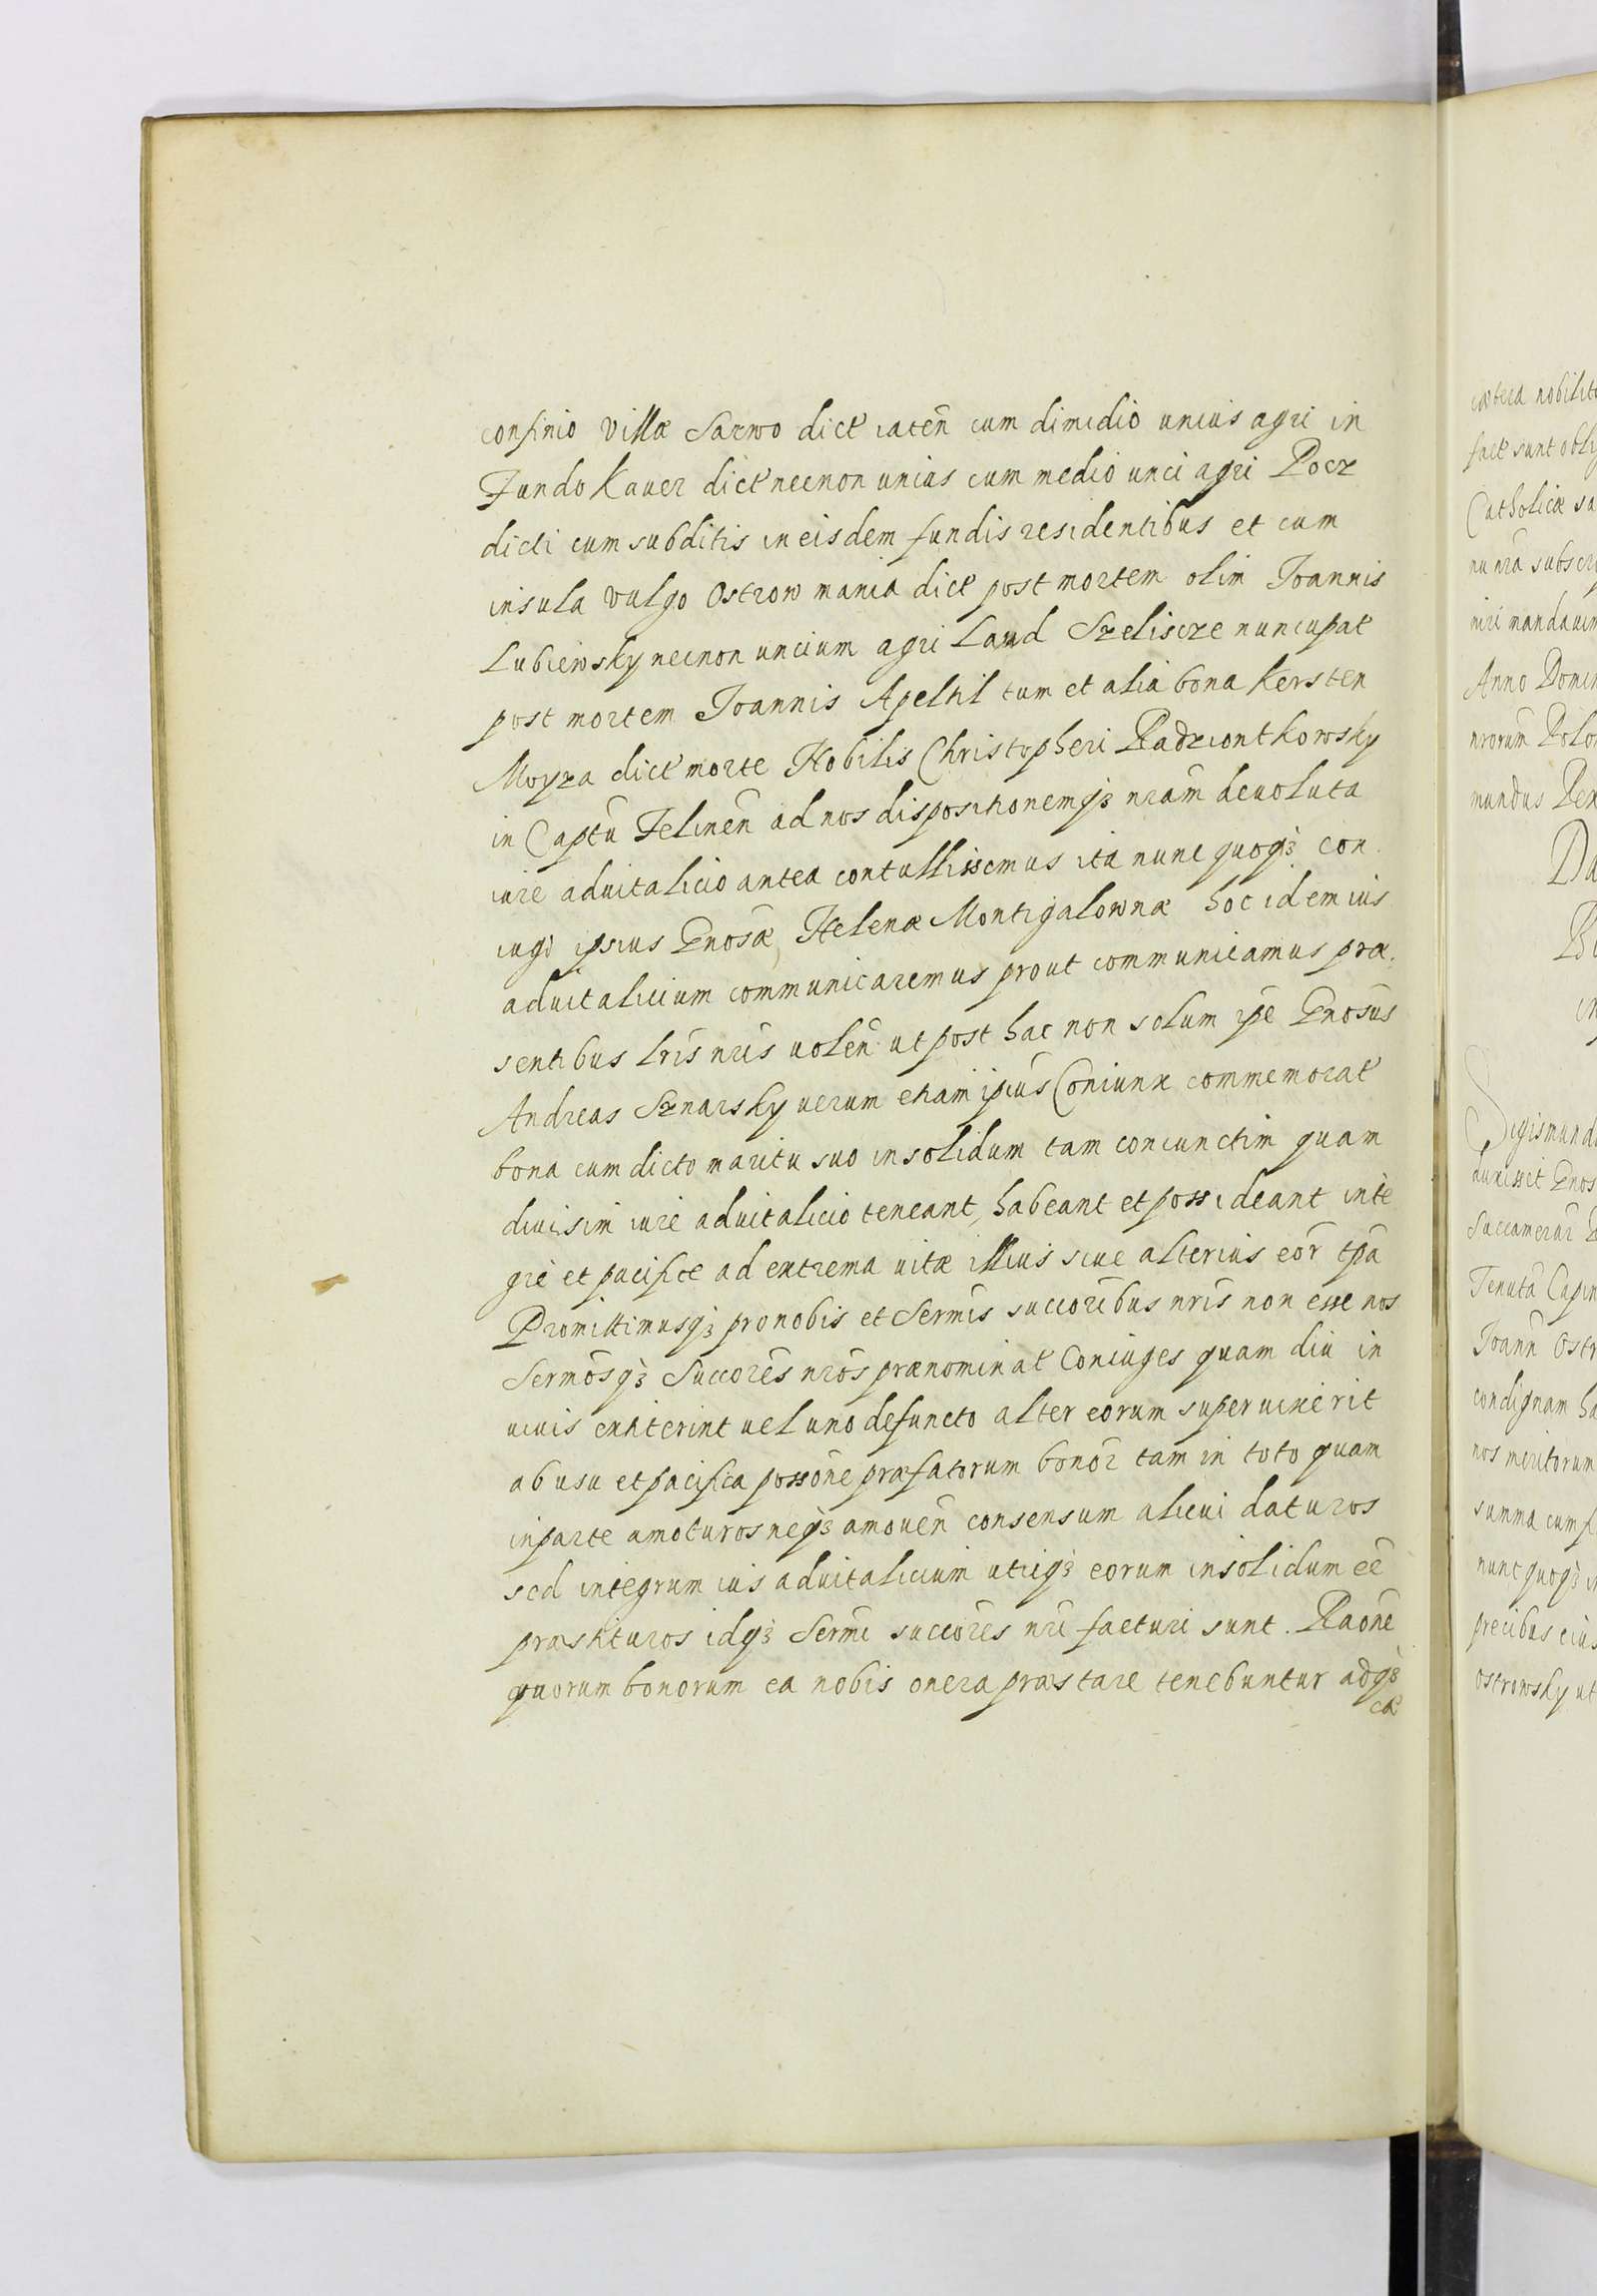 confinio Villæ Sarwo dict iacen̄ cum dimidio unius agri in
Fundo Kauer dict necnon unius cum medio unci agri Pocz
dicti cum subditis in eisdem fundis residentibus et cum
insula vulgo Ostrow mania dict post mortem olim Joannis
Lubiewsky necnon uncium agri Land Szeliscze nuncupat
post mortem Joannis Apelhil tum et alia bona Kersten
Moyza dict morte Nobilis Christopheri Radziontkowsky
in Captū Felinen̄ ad nos dispositionemqȝ nr̄am devoluta
iure aduitalicio antea contullissemus ita nunc quoqȝ con
iugi ipsius Gnosæ Helenæ Montigalownæ hoc idem ius
aduitalicium communicaremus prout communicamus præ.
sentibus lr̄is nr̄is uolen̄ ut post hac non solum ip̄e Gnosus
Andreas Sznarsky uerum etiam ip̄ius Coniunx commemorat
bona cum dicto maritu suo insolidum tam coniunctim quam
diuisim iure aduitalicio teneant, habeant et possideant inte
gre et pacifice ad extrema uitæ illius siue alterius eor̄ tp̄a
Promittimusqȝ pro nobis et Sermis succoribus nr̄is non esse nos
Sermosqȝ Succores nr̄os prænominat Coniuges quam diu in
uiuis extiterint uel uno defuncto alter eorum superuixerit
ab usu et pacifica possōne præfatorum bonor tam in toto quam
in parte amoturos neqȝ amouen̄ consensum alicui daturos
sed integrum ius aduitalicium utriqȝ eorum insolidum eē
præstituros idqȝ Sermi succores nr̄i facturi sunt. Raōne
quorum bonorum ea nobis onera præstare tenebuntur adqȝ
cæ
cætera nobilit
fact sunt obli
Catholicæ sa
nu nr̄a subscri
niri mandauim
Anno Domin
nrorum Polon
mundus Rex
Sigismund
duxissit Gnos
Succamerar
Tenuta Capin
Joann̄ Ostr
condignam ha
nos meritorum
summa cum f
nunc quoqȝ in
precibus eius
Ostrowsky ut